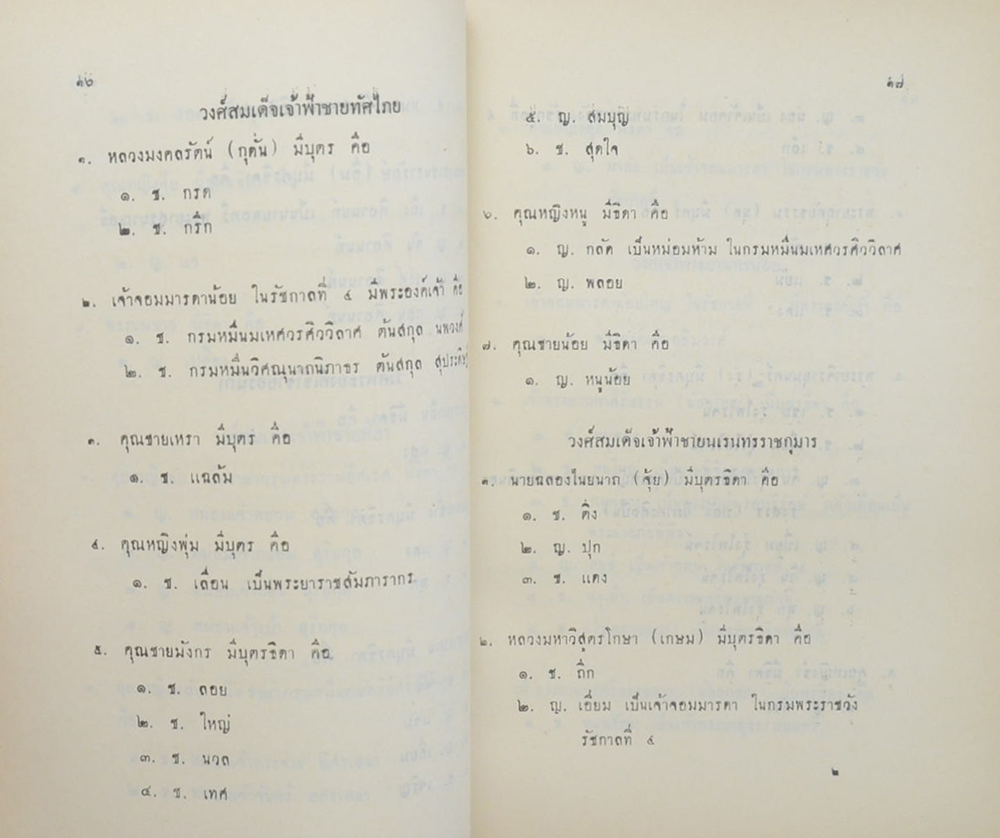 ๑๖
วงศ์สมเด็จเจ้าฟ้าชายทัศไภย
๑. หลวงมงคลรัตน์ (กุดั่น) มีบุตร คือ
๑. ช. กรด
๒. ช. กริก
๒. เจ้าจอมมารดาน้อย ในรัชกาลที่ ๔ มีพระองค์เจ้า คือ
๑. ช. กรมหมื่นมเหศวรศิววิลาศ ต้นสกุล นพวงศ์
๒. ช. กรมหมื่นวิศณุนาถนิภาธร ต้นสกุล สุประดิษฐ์
๓. คุณชายเหรา มีบุตร คือ
๑. ช. แฉล้ม
๔. คุณหญิงพุ่ม มีบุตร คือ
๑. ช. เลื่อน เป็นพระยาราชสัมภารากร
๕. คุณชายมังกร มีบุตรธิดา คือ
๑. ช. ลอย
๒. ช. ใหญ่
๓. ช. นวล
๔. ช. เทศ
๑๗
๕. ญ. สมบุญ
๖. ช. สุดใจ
๖. คุณหญิงหนู มีธิดา คือ
๑. ญ. กลัด เป็นหม่อมห้าม ในกรมหมื่นมเหศวรศิววิลาศ
๒. ญ. พลอย
๗. คุณชายน้อย มีธิดา คือ
๑. ญ. หนูน้อย
วงศ์สมเด็จเจ้าฟ้าชายนเรนทรราชกุมาร
๑. นายฉลองไนยนาถ (จุ้ย) มีบุตรธิดา คือ
๑. ช. ติ่ง
๒. ญ. ปุก
๓. ช. แดง
๒. หลวงมหาวิสูตรโกษา (เกษม) มีบุตรธิดา คือ
๑. ช. ถึก
๒. ญ. เอี่ยม เป็นเจ้าจอมมารดา ในกรมพระราชวัง
รัชกาลที่ ๔
๒